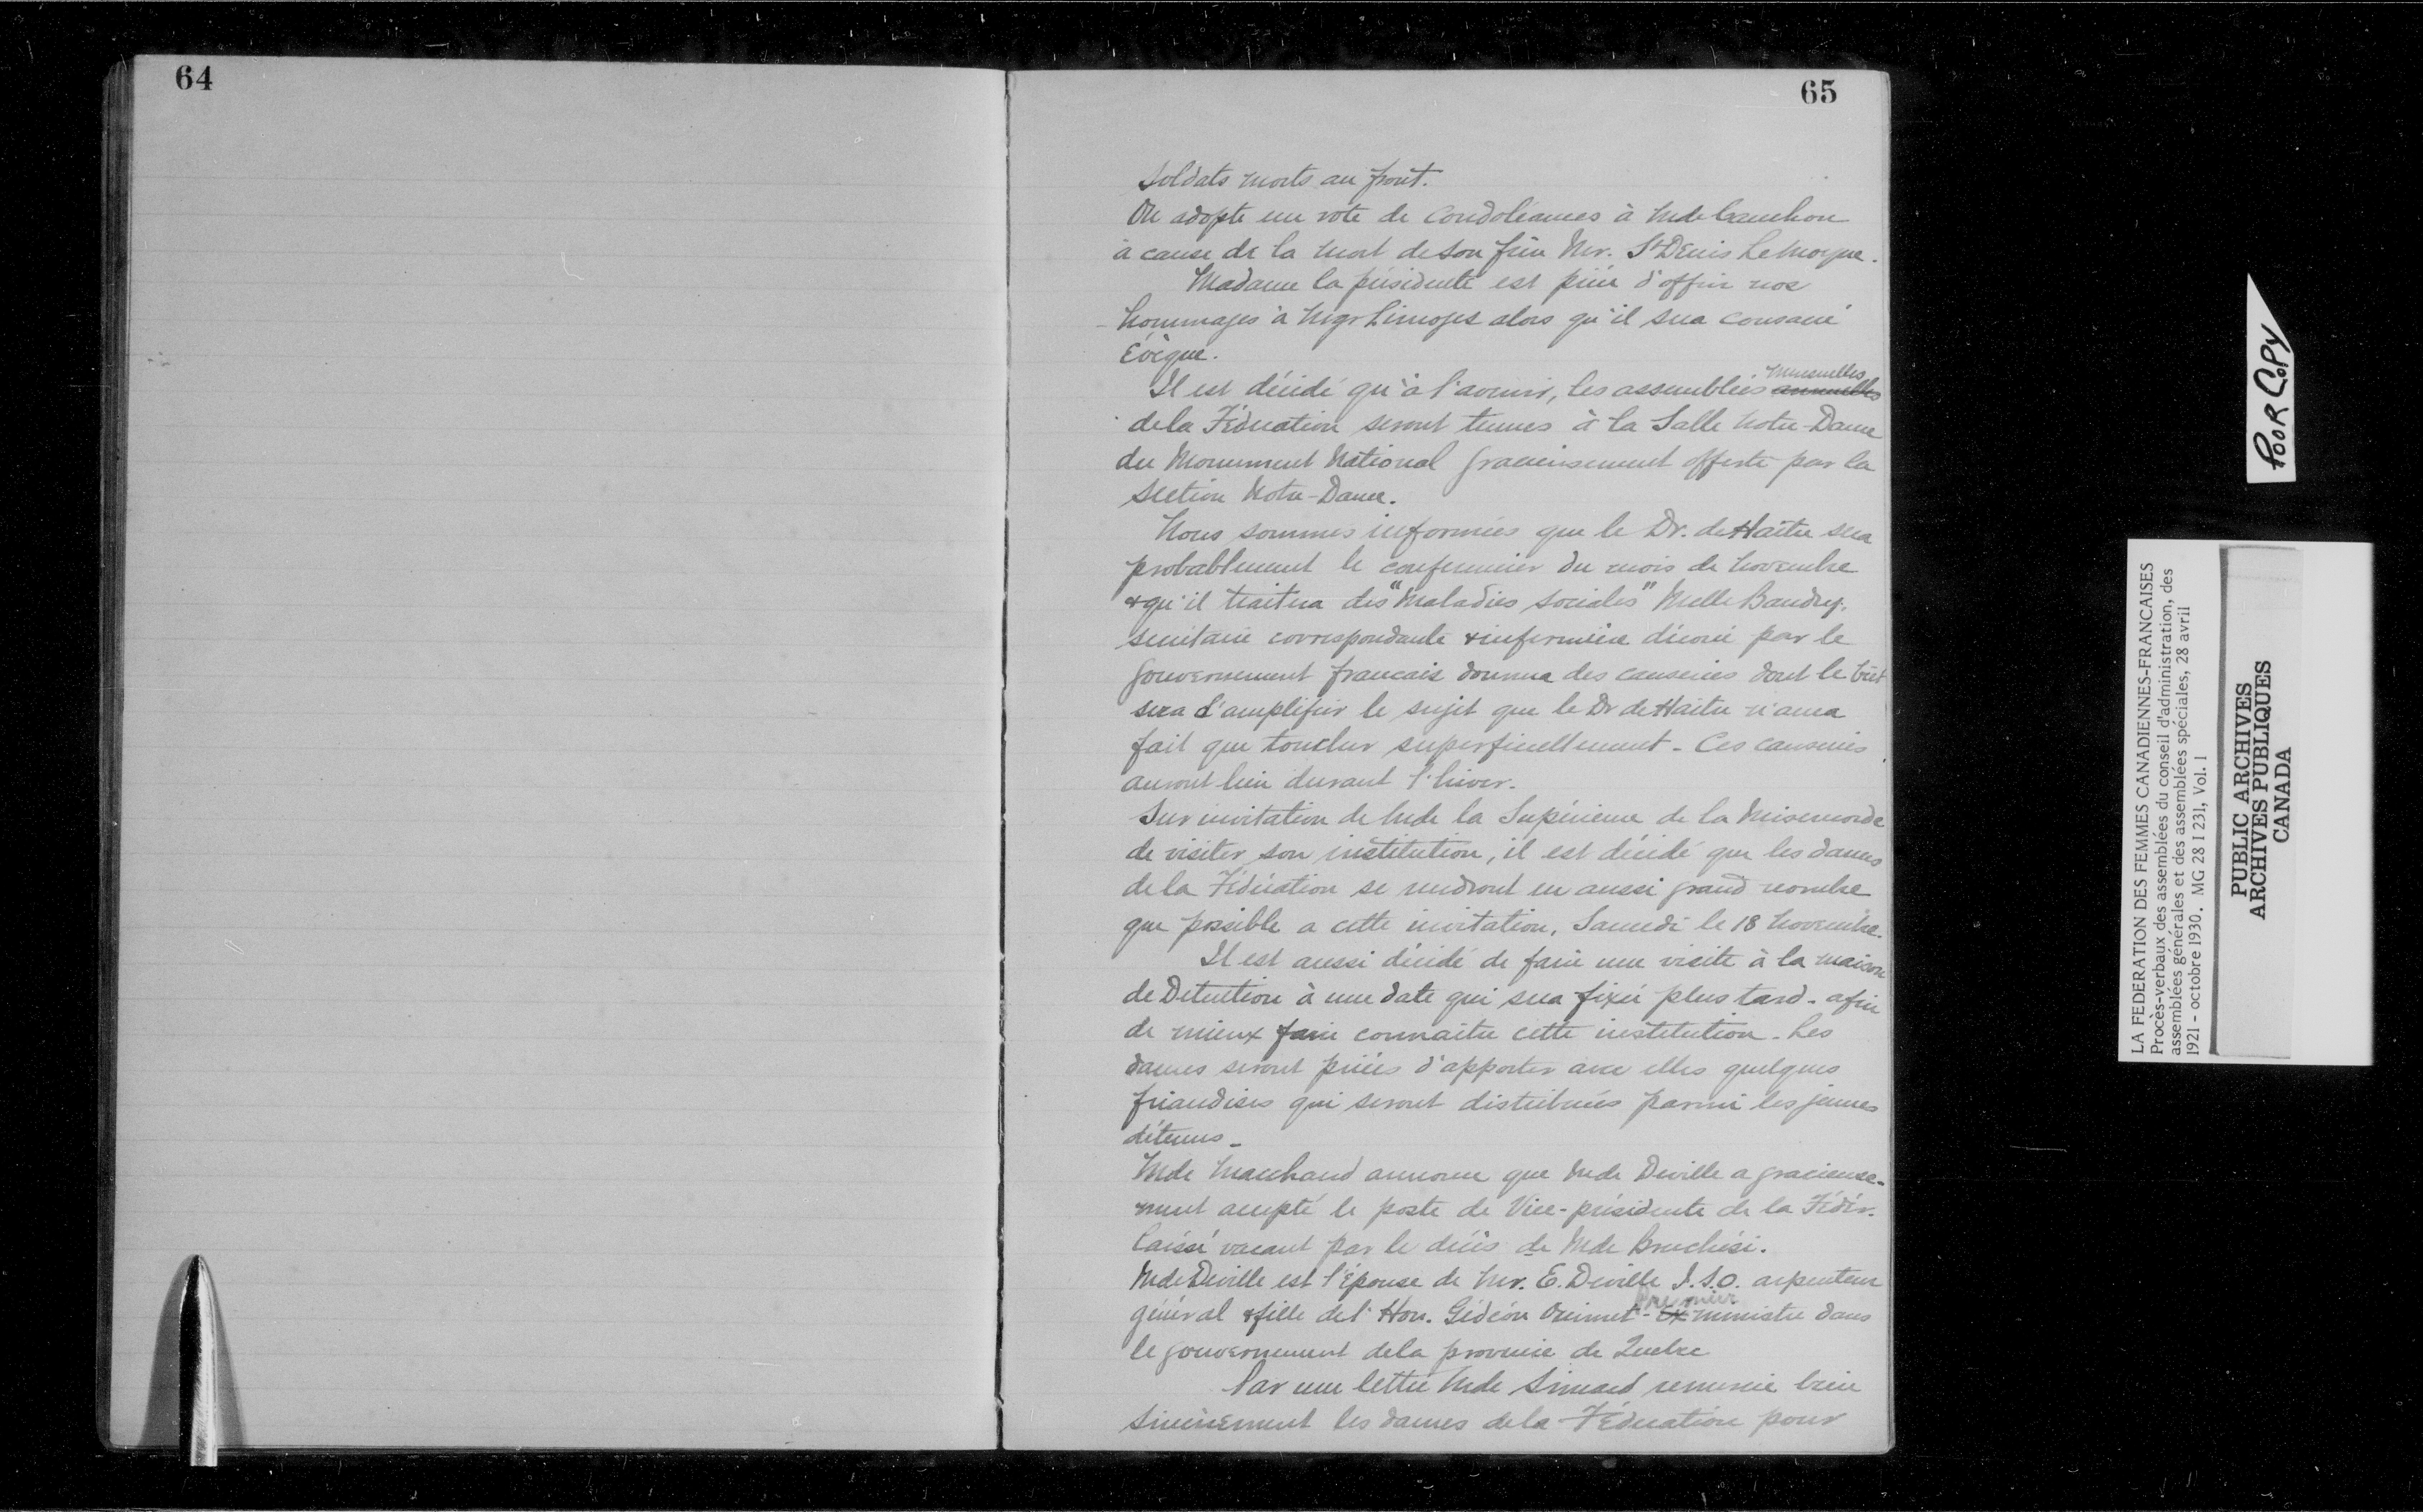 64
65
soldats morts au front.
On adopte un vote de condoléances à Mde Cauchon
à cause de la mort de son frère Mr. St Denis LeMoyne.
Madame la présidente est priée d'offrir nos
hommages à Mgr Limoges alors qu'il sera consacré
Évêque.
Il est décidé qu'à l'avenir, les assemblées annuelles mensuelles
de la Fédération seront tenues à la Salle Notre-Dame
du Monument National gracieusement offerte par la
section Notre-Dame.
Nous sommes informées que le Dr. de Haître sera
probablement le conférencier du mois de novembre
& qu'il traitera des "Maladies sociales" Melle Baudry,
secrétaire correspondante & infirmière décorée par le
gouvernement francais donnera des causeries dont le bût
sera d'amplifier le sujet que le Dr de Haitre n'aura
fait que toucher superficiellement - Ces causeries
auront lieu durant l'hiver.
Sur invitation de Mde la Supérieure de la Miséricorde
de visiter son institution, il est décidé que les dames
de la Fédération se rendront en aussi grand nombre
que possible a cette invitation, Samedi le 18 novembre.
Il est aussi décidé de faire une visite à la maison
de Detention à une date qui sera fixée plus tard - afin
de mieux faire connaitre cette institution - Les
dames seront priées d'apporter avec elles quelques
friandises qui seront distribuées parmi les jeunes
détenus -
Mde Marchand annonce que Mde Deville a gracieuse-
ment accepté le poste de Vice-présidente de la Fédér.
laissé vacant par le décès de Mde Bruchési.
Mde Deville est l'épouse de Mr. E. Deville I.S.O. arpenteur
général & fille de l'Hon. Gédéon Ouimet - Ex premier ministre dans
le gouvernement de la province de Quebec
Par une lettre Mde Simard remercie bien
sincèrement les dames de la Fédération pour
POOR COPY
LA FEDERATION DES FEMMES CANADIENNES-FRANCAISES
Procès-verbaux des assemblées du conseil d'administration, des
assemblées générales et des assemblées spéciales, 28 avril
1921 - octobre 1930. MG 28 I 231, Vol. 1
PUBLIC ARCHIVES
ARCHIVES PUBLIQUES
CANADA